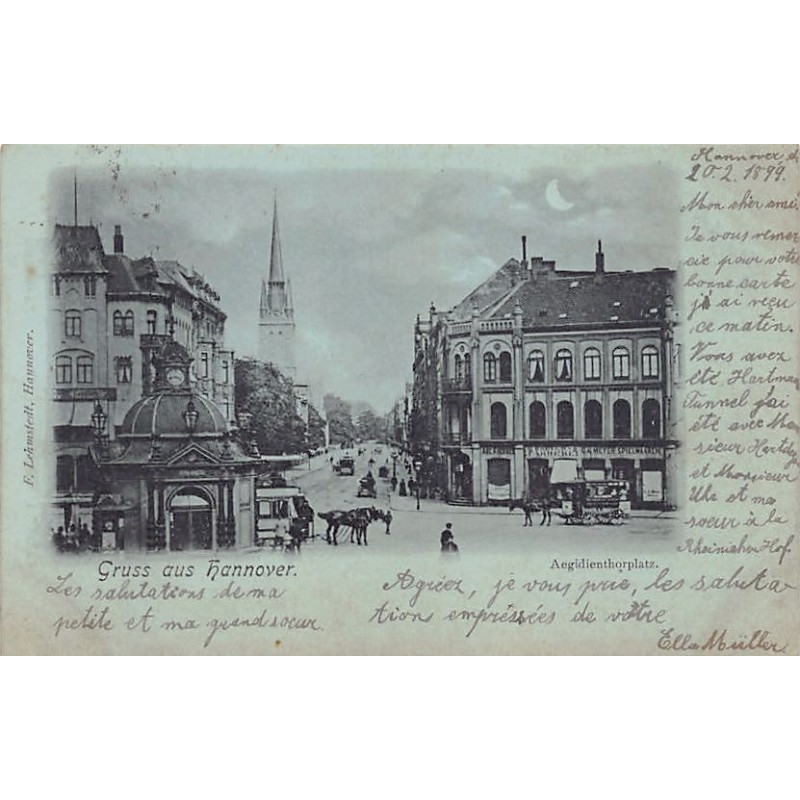 Hannover d.
20.2.1899.
Mon cher ami.
Je vous remer
cie pour votre
bonne carte
j'ai reçu
ce matin.
Vous avez
été Hartman
Tunnel j'ai
été avec Mon
sieur
et Monsieur
Uhl et ma
soeur à la
Rheinischer Hof.
F. Lehmstedt, Hannover.
Gruss aus Hannover.
Aegidienthorplatz.
Les salutations de ma
petite et ma grand soeur.
Agréez, je vous prie, les saluta-
tions empréssées de votre
Ella Müller.